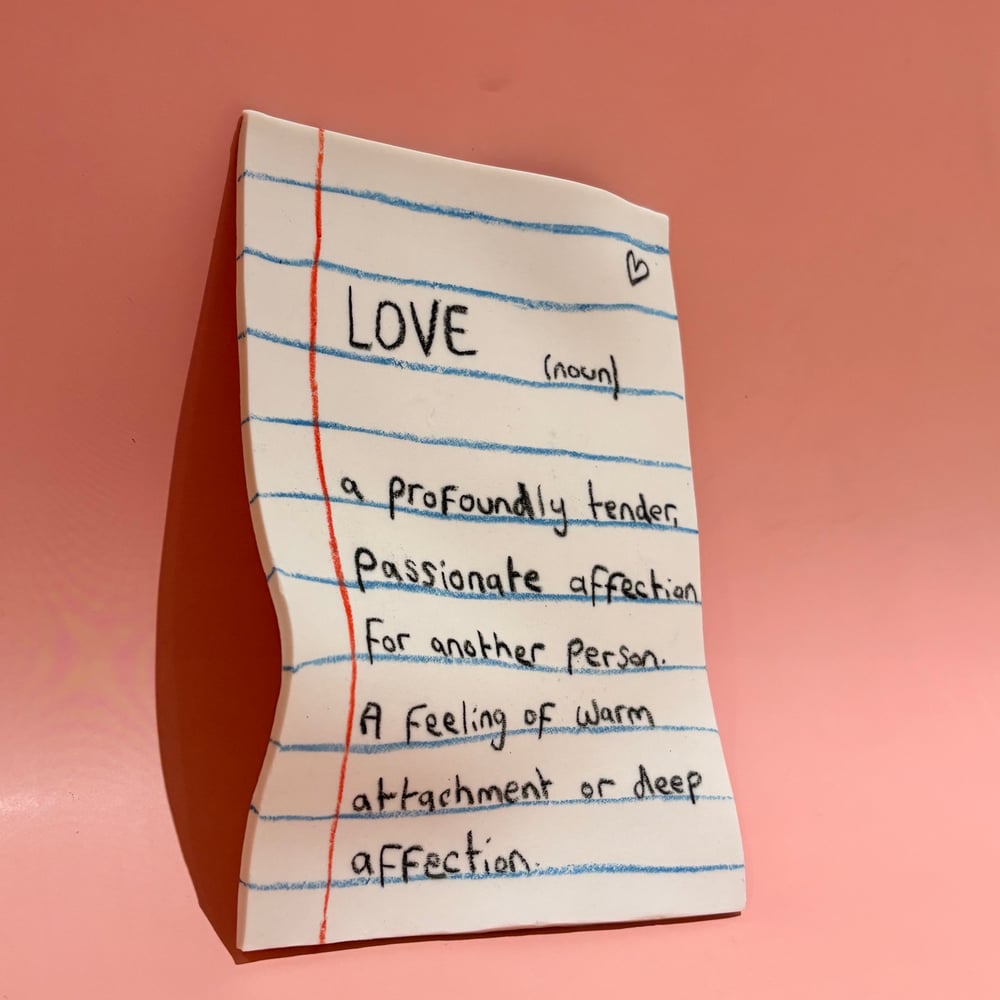 LOVE
(noun)
a profoundly tender,
passionate affection
for another person.
A feeling of warm
attachment or deep
affection.